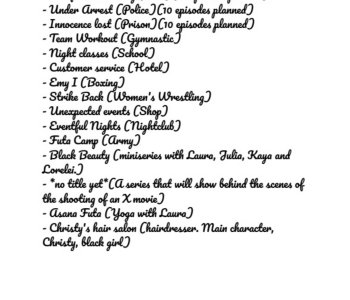 - Under Arrest (Police)(10 episodes planned)
- Innocence lost (Prison)(10 episodes planned)
- Team Workout (Gymnastic)
- Night classes (School)
- Customer service (Hotel)
- Emy I (Boxing)
- Strike Back (Women's Wrestling)
- Unexpected events (Shop)
- Eventful Nights (Nightclub)
- Futa Camp (Army)
- Black Beauty (miniseries with Laura, Julia, Kaya and
Lorelei.)
- *no title yet*(A series that will show behind the scenes of
the shooting of an X movie)
- Asana Futa (Yoga with Laura)
- Christy's hair salon (hairdresser. Main character,
Christy, black girl)